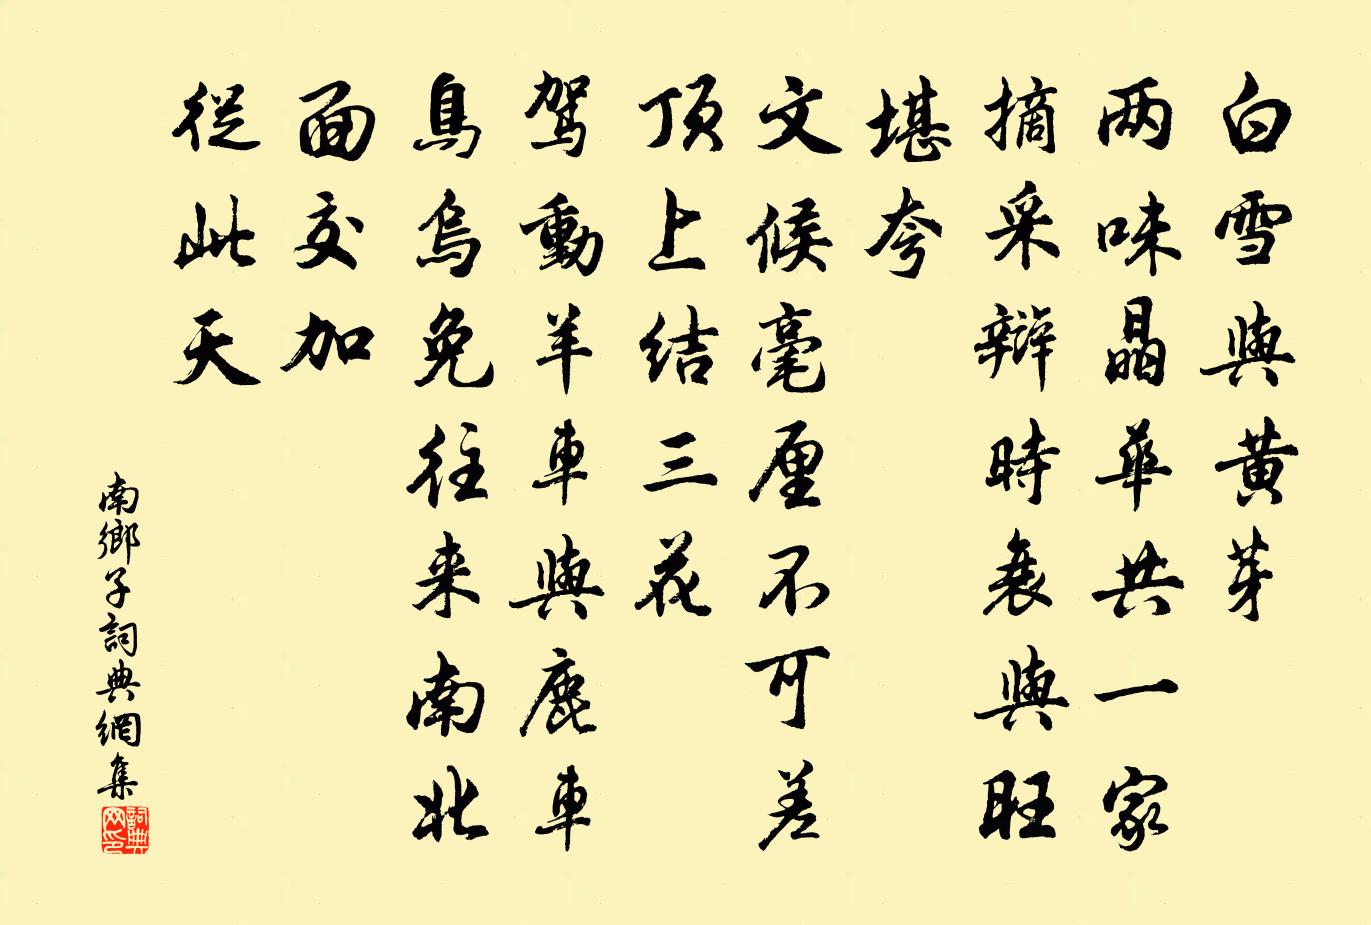 白雪與黃芽
两味晶華共一家
摘采辩時衰與旺
堪夸
文候毫厘不可差
顶上结三花
驾動羊車與鹿車
鳥烏免往来南北
面交加
従此天
南鄉子詞典網集
詞典网印